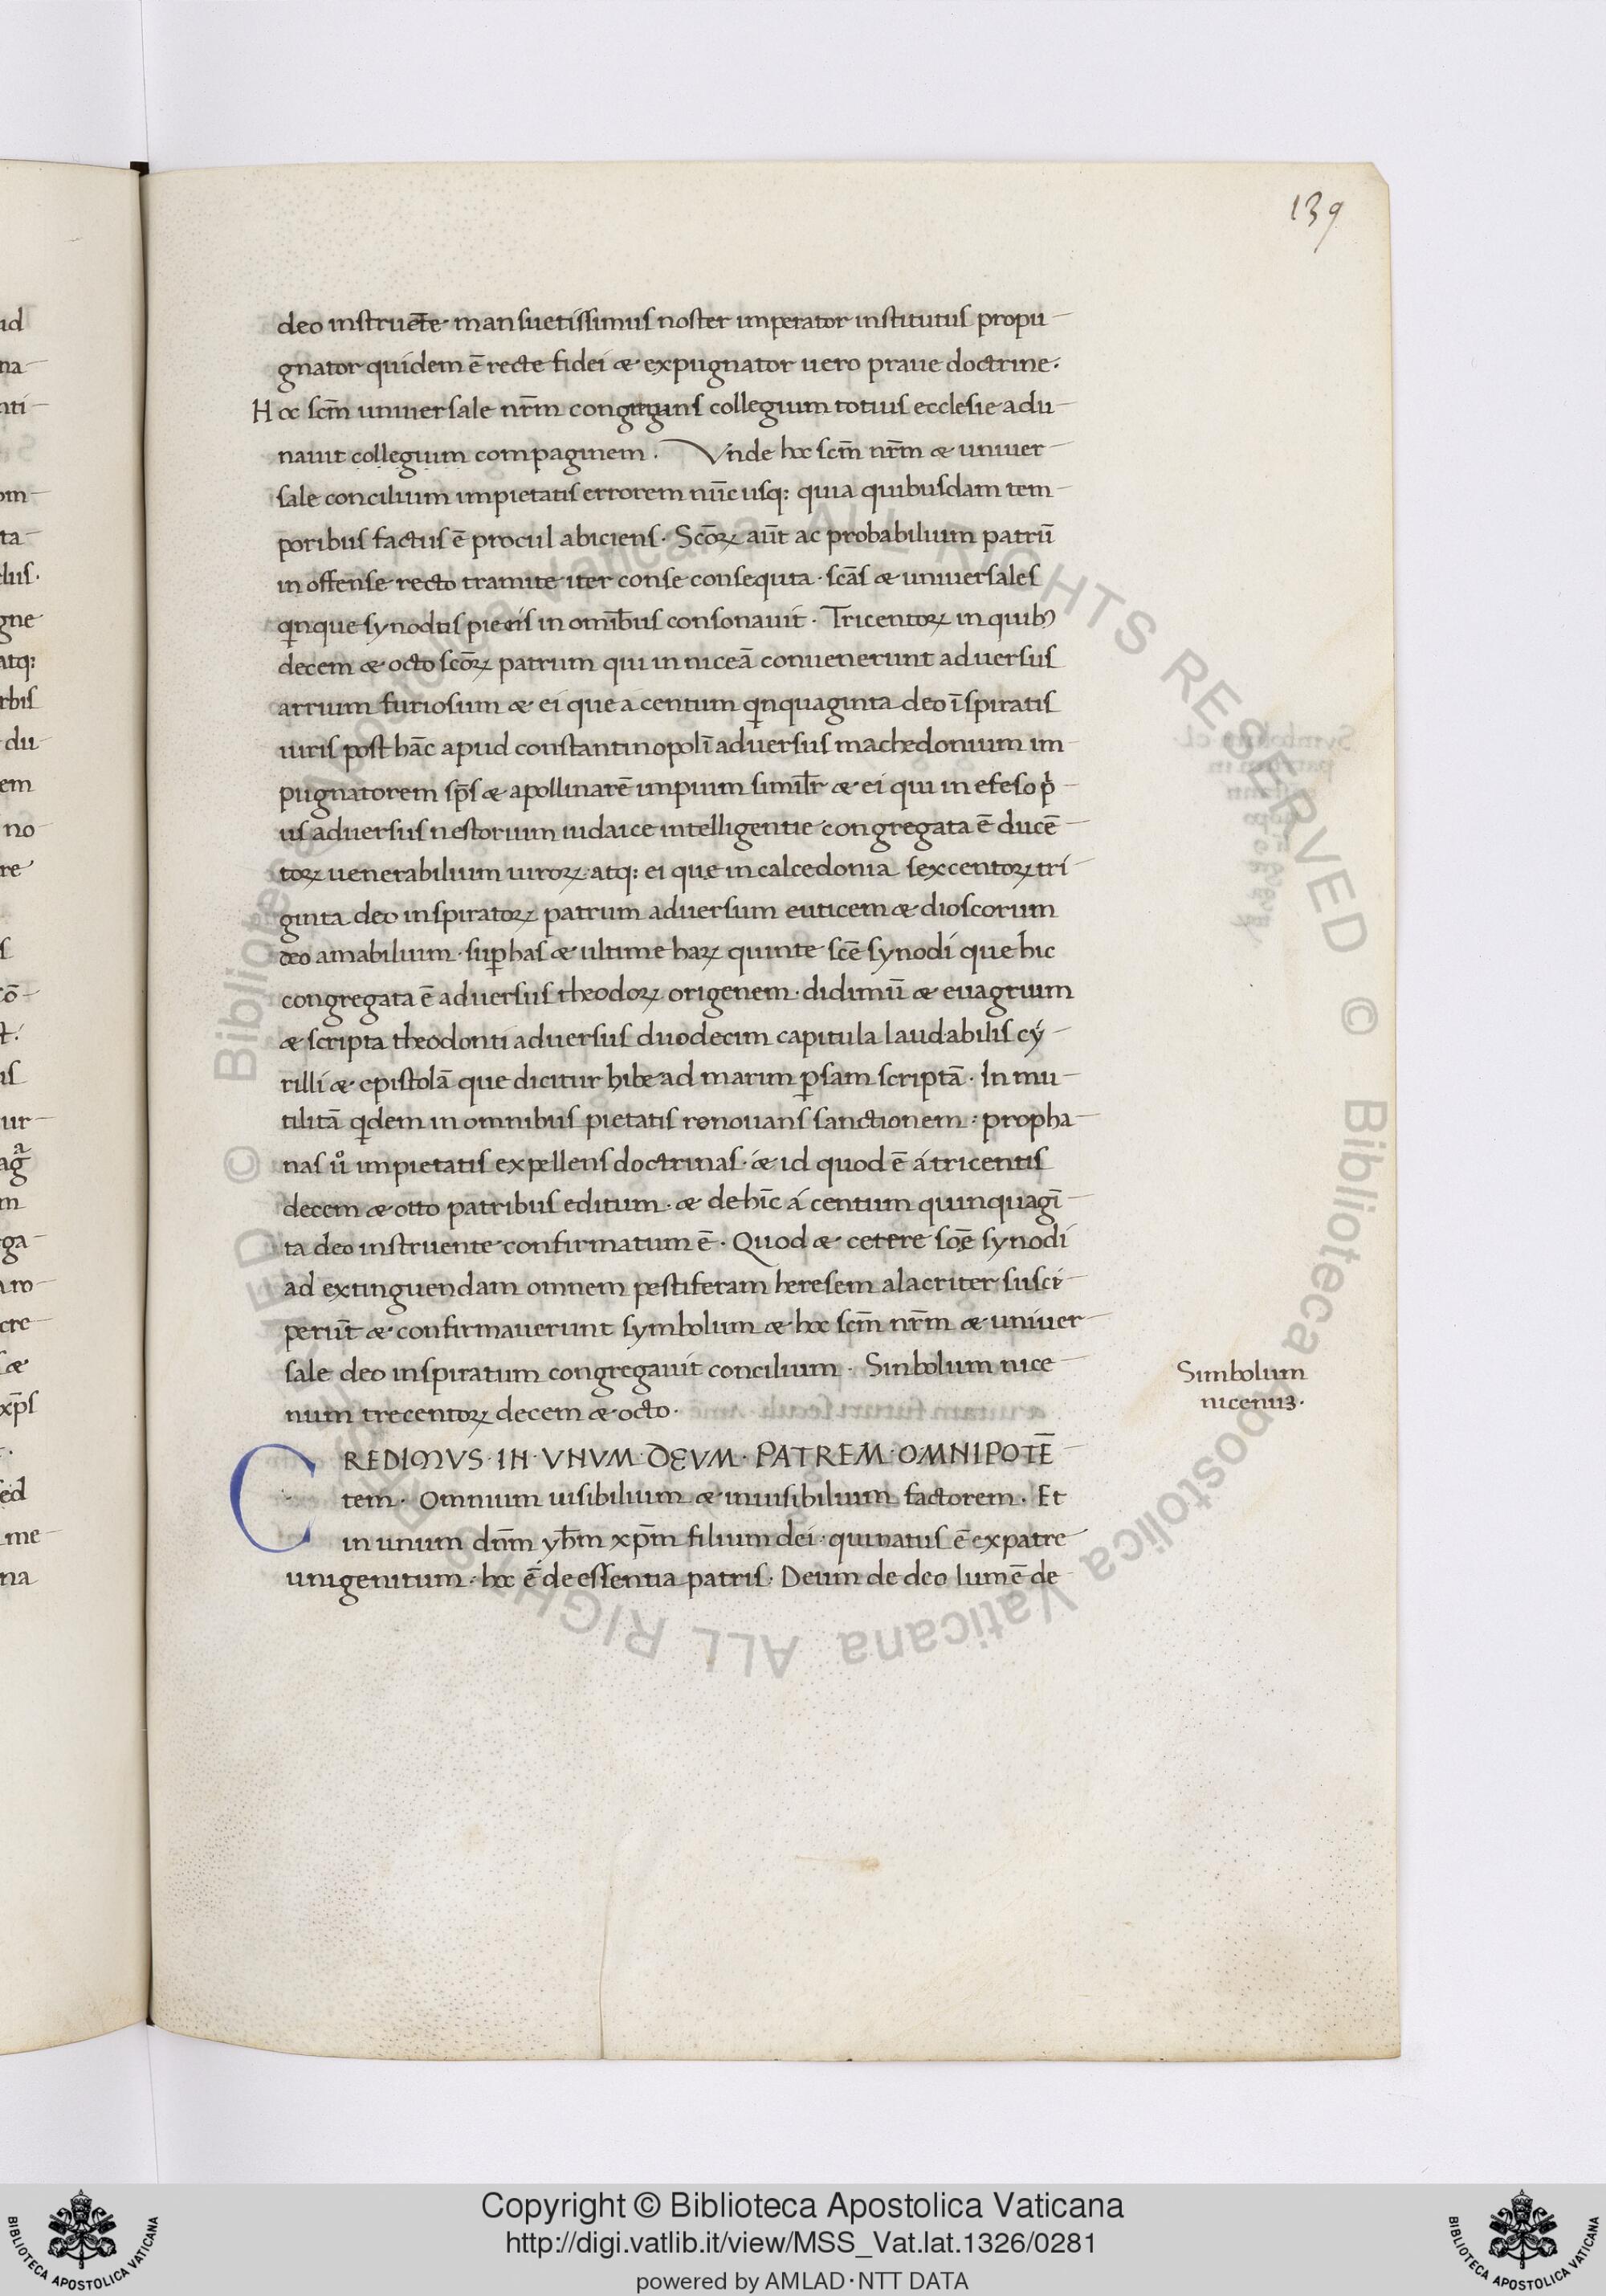 139
deo instruēte mansuetissimus noster imperator institutus propu
gnator quidem ē recte fidei & expugnator uero praue doctrine.
Hoc scm̄ uniuersale nrm̄ congruens collegium totius ecclesie adu
nauit collegium compaginem. Vnde hoc scm̄ nrm̄ & uniuer
sale concilium impietatis errorem nūc usq: quia quibusdam tem
poribus factus ē procul abiciens. Scōꝝ aūt ac probabilium patrū
in offense recto tramite iter conse consequta. scās & uniuersales
qnque synodus pie eis in omībus consonauit. Tricentoꝝ in quibꝰ
decem & octo scōꝝ patrum qui in niceā conuenerunt aduersus
arrium furiosum & ei que a centum qnquaginta deo īspiratis
uiris post hāc apud constantinopolī aduersus machedonium im
pugnatorem sp̄s & apollinarē impium simil̄r & ei qui in efeso p
us aduersus nestorium iudaice intelligentie congregata ē ducē
toꝝ uenerabilium uiroꝝ atq: ei que in calcedonia sexcentoꝝ tri
ginta deo inspiratoꝝ patrum aduersum euticem & dioscorum
deo amabilium. suꝑ has & ultime haꝝ quinte scē synodi que hic
congregata ē aduersus theodoꝝ origenem. didimū & euagrium
& scripta theodonti aduersus duodecim capitula laudabilis cy
rilli & epistolā que dicitur hibe ad marim ꝑsam scriptā. In mu
tilitā qdem in omnibus pietatis renouans sanctionem: propha
nas uͦ impietatis expellens doctrinas. & id quod ē á tricentis
decem & otto patribus editum. & dehīc á centum quinquagī
ta deo instruente confirmatum ē. Quod & cetere scē synodi
ad extinguendam omnem pestiferam heresem alacriter susci
perūt & confirmauerunt symbolum & hoc scm̄ nrm̄ & uniuer
sale deo inspiratum congregauit concilium. Sinbolum nice
num trecentoꝝ decem & octo.
Simbolum
nicenuꝫ.
CREDIMVS·IN·VNVM·DEVM·PATREM·OMNIPOTĒ
tem. Omnium uisibilium & inuisibilium factorem. Et
in unum dnm̄ yhm̄ xpm̄ filium dei. qui natus ē ex patre
unigenitum. hoc ē de essentia patris. Deum de deo lumē de
Copyright © Biblioteca Apostolica Vaticana
http://digi.vatlib.it/view/MSS_Vat.lat.1326/0281
powered by AMLAD·NTT DATA